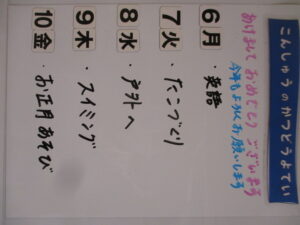 こんしゅうのかつどうよてい
あけまして おめでとう ございます
今年もよろしくお願いします
6 月 ・英語
7 火 ・たこづくり
8 水 ・戸外へ
9 木 ・スイミング
10 金 ・お正月あそび